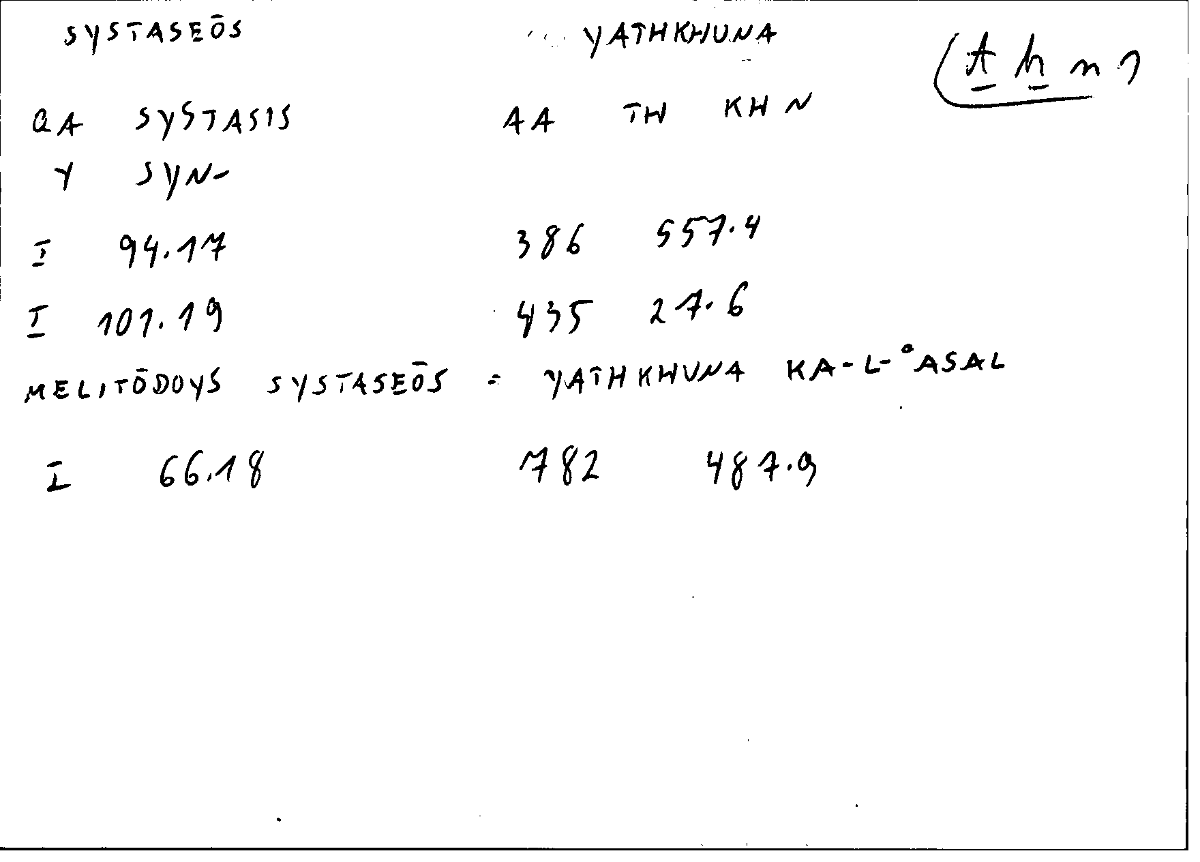 SYSTASEŌS YATHKHUNA (ṯ ẖ n)
QA SYSTASIS AA TH KH N
Y SYN-
I 94.17 386 557.4
I 101.19 435 27.6
MELITŌDOYS SYSTASEŌS = YATHKHUNA KA-L-°ASAL
I 66.18 782 487.9